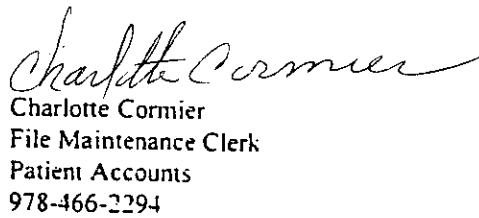 Charlotte Cormier
Charlotte Cormier
File Maintenance Clerk
Patient Accounts
978-466-2294